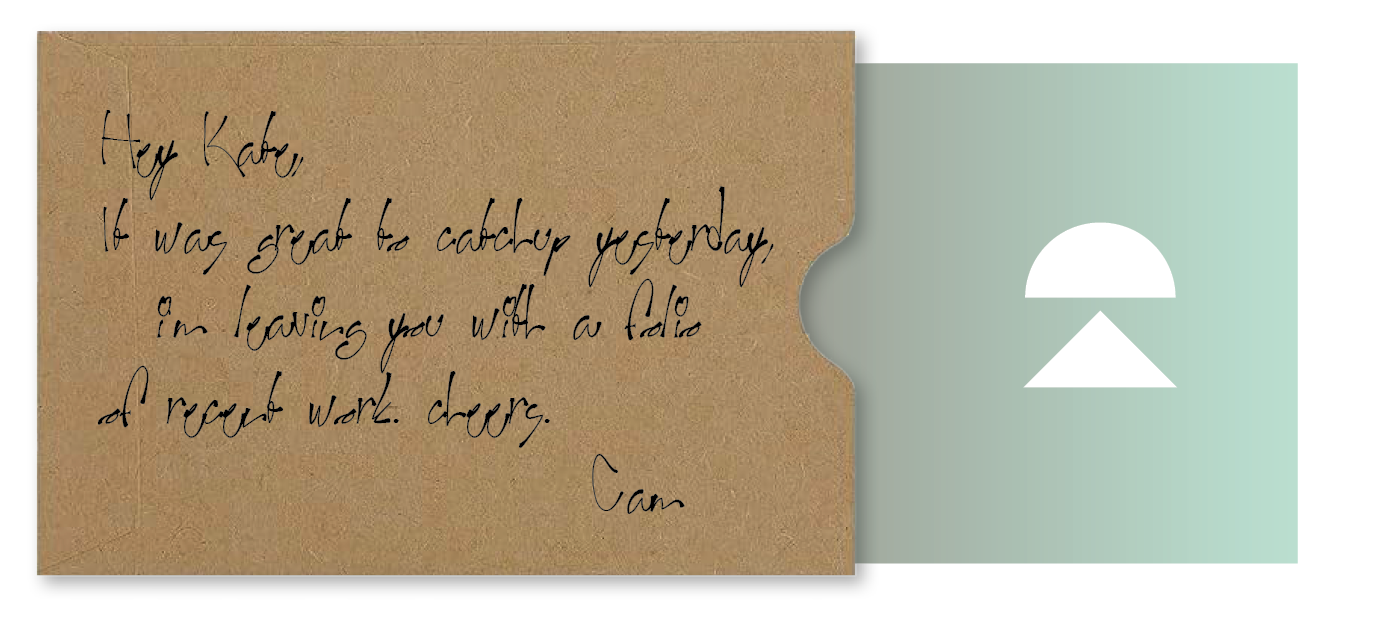 Hey Kate,
It was great to catchup yesterday,
im leaving you with a folio
of recent work. cheers.
Cam